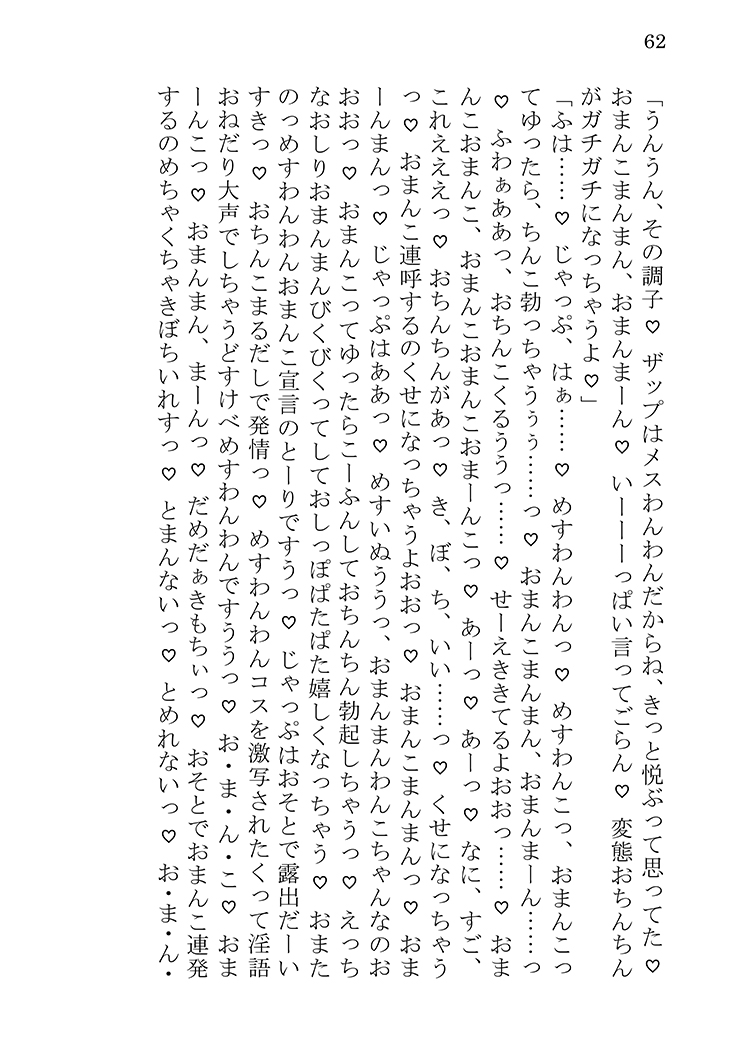 62
「うんうん、その調子♡　ザップはメスわんわんだからね、きっと悦ぶって思ってた♡
おまんこまんまん、おまんまーん♡　いーーーっぱい言ってごらん♡　変態おちんちん
がガチガチになっちゃうよ♡」
「ふは……♡　じゃっぷ、はぁ……♡　めすわんわんっ♡　めすわんこっ、おまんこっ
てゆったら、ちんこ勃っちゃうぅぅ……っ♡　おまんこまんまん、おまんまーん……っ
♡　ふわぁああっ、おちんこくるううっ……♡　せーえききてるよおおっ……♡　おま
んこおまんこ、おまんこおまんこおまーんこっ♡　あーっ♡　あーっ♡　なに、すご、
これえええっ♡　おちんちんがあっ♡　き、ぼ、ち、いい……っ♡　くせになっちゃう
っ♡　おまんこ連呼するのくせになっちゃうよおおっ♡　おまんこまんまんっ♡　おま
ーんまんっ♡　じゃっぷはああっ♡　めすいぬううっ、おまんまんわんこちゃんなのお
おおっ♡　おまんこってゆったらこーふんしておちんちん勃起しちゃうっ♡　えっち
なおしりおまんまんびくびくってしておしっぽぱたぱた嬉しくなっちゃう♡　おまた
のっめすわんわんおまんこ宣言のとーりですうっ♡　じゃっぷはおそとで露出だーい
すきっ♡　おちんこまるだしで発情っ♡　めすわんわんコスを激写されたくって淫語
おねだり大声でしちゃうどすけべめすわんわんですううっ♡　お・ま・ん・こ♡　おま
ーんこっ♡　おまんまん、まーんっ♡　だめだぁきもちぃっ♡　おそとでおまんこ連発
するのめちゃくちゃきぼちいれすっ♡　とまんないっ♡　とめれないっ♡　お・ま・ん・